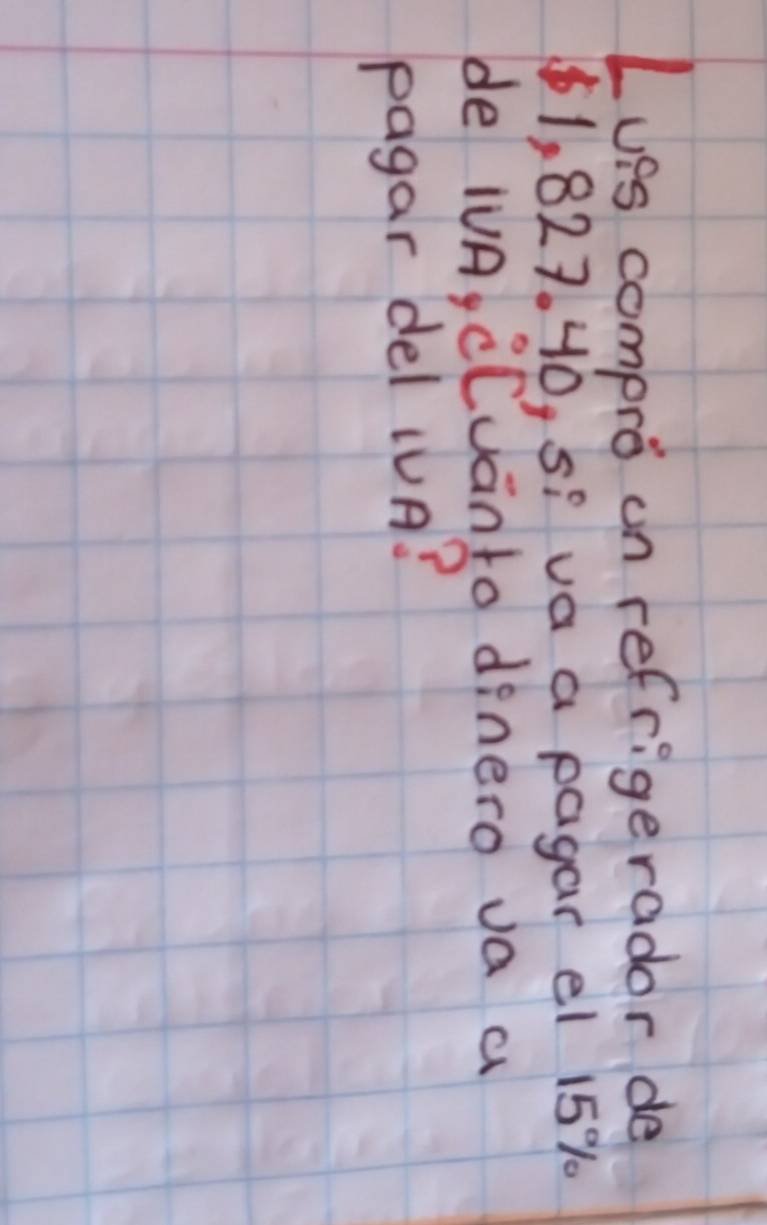 Luis compró un refrigerador de
$1,827.40, si va a pagar el 15%
de IVA, ¿Cuánto dinero va a
pagar del IVA?